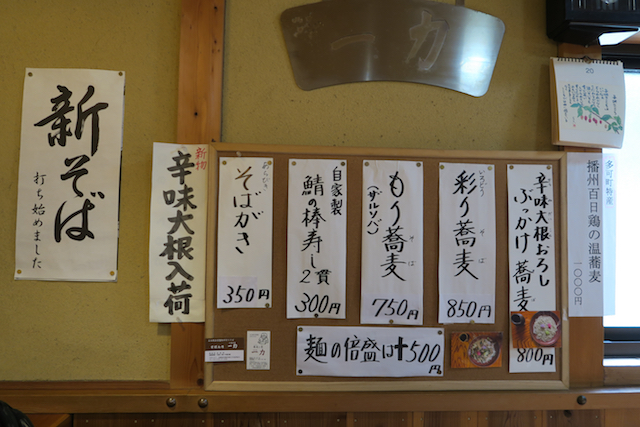 一力
新そば
打ち始めました
新物
辛味大根入荷
そばがき
350円
自家製
鯖の棒寿し2貫
300円
もり蕎麦
そば
(ザルソバ)
750円
彩り蕎麦
いろどり
そば
850円
辛味大根おろし
ぶっかけ蕎麦
800円
多可町特産
播州百日鶏の温蕎麦
一〇〇〇円
麺の倍盛は+500
円
一力
一力
20